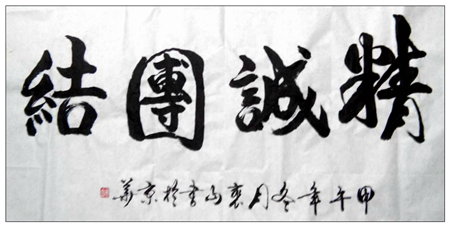 精誠團結
甲午年冬月山書於京華